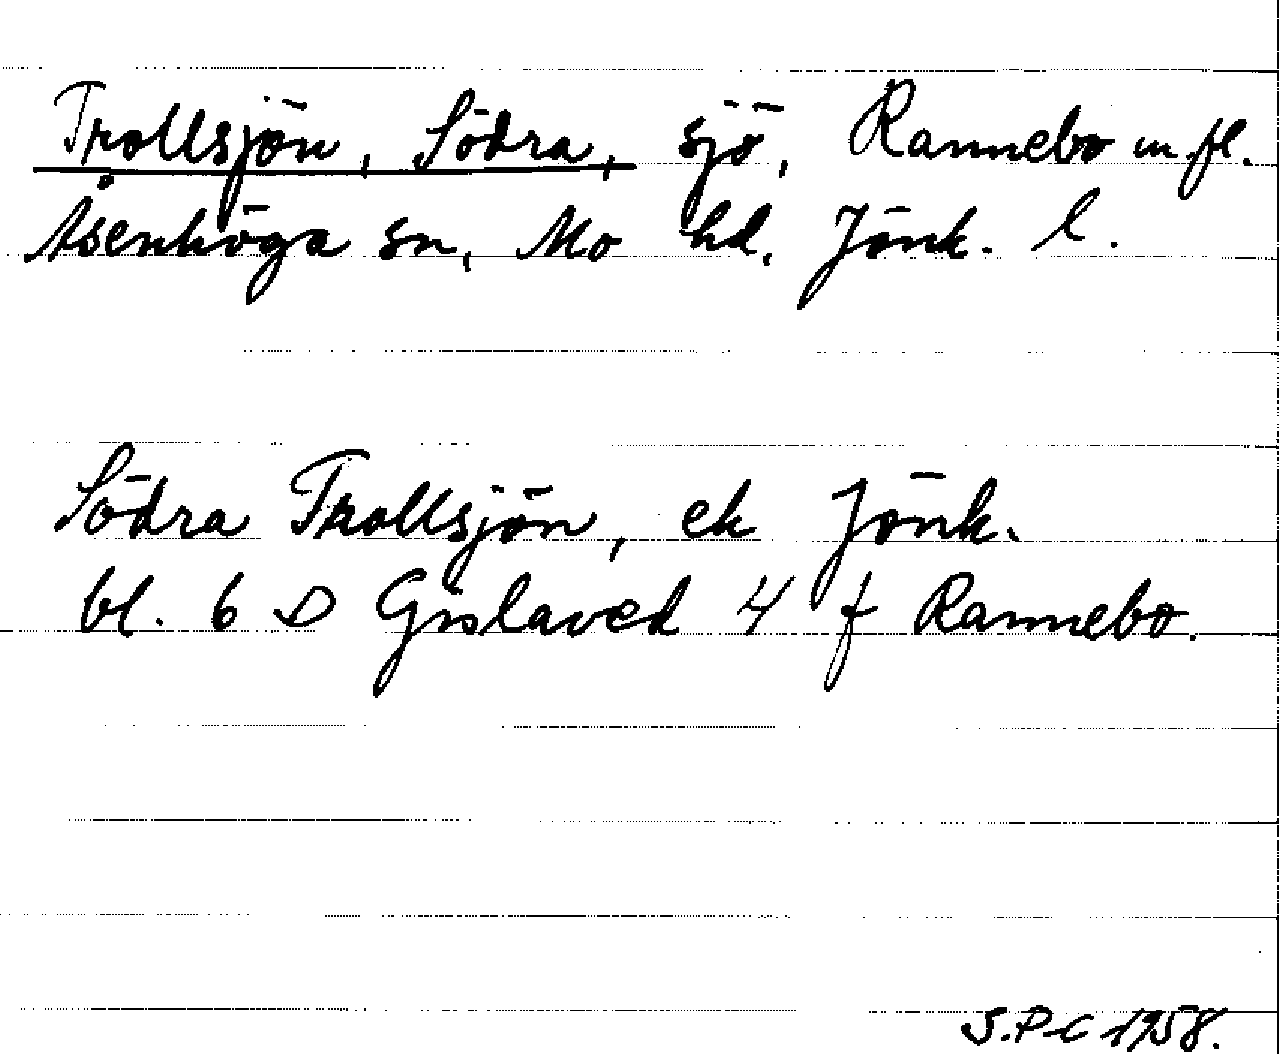 Trollsjön, Södra, sjö, Rannebo m.fl.
Åsenhöga sn, Mo hd, Jönk. l.
Södra Trollsjön, ek Jönk.
bl. 6 D Gislaved 4 f Rannebo.
S.P-C 1958.